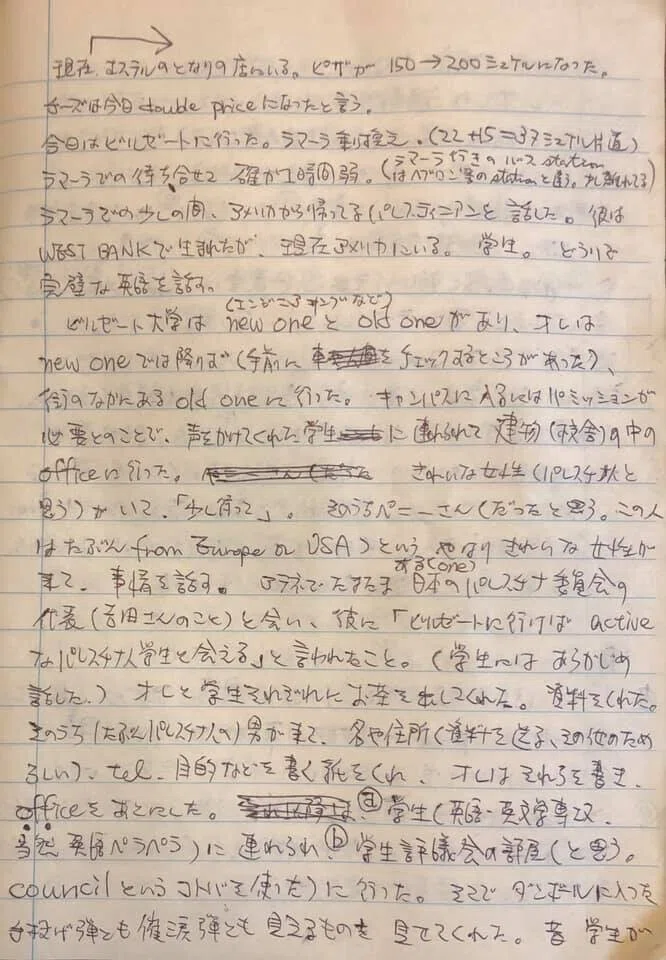 現在、ホステルのとなりの店にいる。ピザが 150→200シェケルになった。
チーズは今日double priceになったと言う。
今日はビルゼートに行った。ラマーラ乗り換え。(22+15=37シェケル片道)
ラマーラでの待ち合せで 確か1時間弱。(ラマーラ行きのバスstation
はヘブロン等のstationと違う。少し離れてる)
ラマーラでの少しの間、アメリカから帰ってるパレスティニアンと話した。彼は
WEST BANKで生まれたが、現在アメリカにいる。学生。どうりで
完璧な英語を話す。
(エンジニアリングなど)
ビルゼート大学は new oneと old oneがあり、オレは
new oneでは降りず(手前に をチェックするところがあった)、
街のなかにあるold oneに行った。キャンパスに入るにはパミッションが
必要とのことで、声をかけてくれた学生 に連れられて 建物(校舎)の中の
officeに行った。 きれいな女性(パレスチナ人と
思う)がいて、「少し待って」。そのうちペニーさん(だったと思う。この人
はたぶんfrom Europe or USA)という やはりきれいな女性が
来て、事情を話す。アラネでたまたま ある(one) 日本のパレスチナ委員会の
代表(吉田さんのこと)と会い、彼に「ビルゼートに行けば active
なパレスチナ人学生と会える」と言われたこと。(学生にはあらかじめ
話した。)オレと学生それぞれにお茶を出してくれた。資料をくれた。
そのうち(たぶんパレスチナ人の)男が来て、名や住所(資料を送る、その他のため
らしい)、tel、目的などを書く紙をくれ、オレはそれらを書き、
officeをあとにした。 ⓐ学生(英語・英文学専攻、
当然英語ペラペラ)に連れられ、ⓑ学生評議会の部屋(と思う。
councilというコトバを使った)に行った。そこでダンボールに入った
手投げ弾とも催涙弾とも見えるものを見せてくれた。昔 学生が